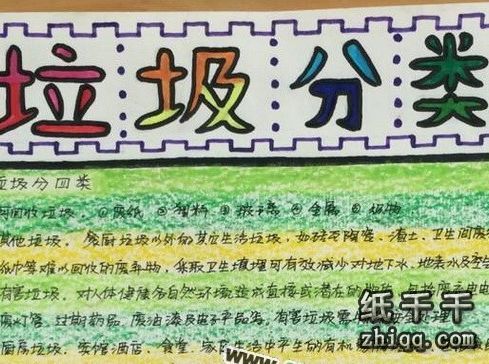 垃圾分类
垃圾分四类
可回收垃圾。①废纸②塑料③玻璃④金属⑤织物
其他垃圾。餐厨垃圾以外的其它生活垃圾,如砖瓦陶瓷、渣土、卫生间废
纸巾等难以回收的废弃物,采取卫生填埋可有效减少对地下水、地表水及
有害垃圾。对人体健康各自然环境造成直接或潜在的
废灯管、过期药品、废油漆及电子产品等,有害垃圾需
厨房垃圾。宾馆酒店、食堂、家庭生活中产生的有机
纸千千
zhiqq.com
www.z